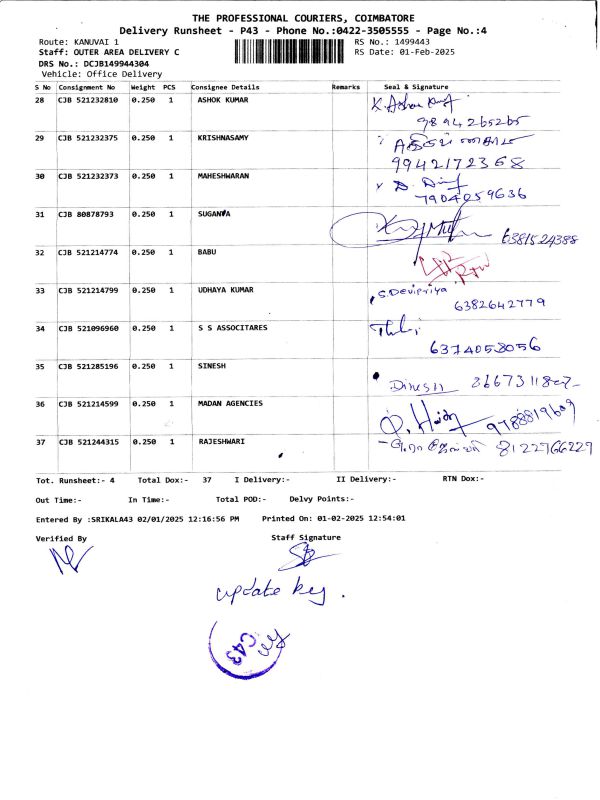 THE PROFESSIONAL COURIERS, COIMBATORE
Delivery Runsheet - P43 - Phone No.:0422-3505555 - Page No.:4
Route: KANUVAI 1 RS No.: 1499443
Staff: OUTER AREA DELIVERY C RS Date: 01-Feb-2025
DRS No.: DCJB149944304
Vehicle: Office Delivery
S No Consignment No Weight PCS Consignee Details Remarks Seal & Signature
28 CJB 521232810 0.250 1 ASHOK KUMAR K. Ashok
9894265265
29 CJB 521232375 0.250 1 KRISHNASAMY
9942172368
30 CJB 521232373 0.250 1 MAHESHWARAN
7904059636
31 CJB 80878793 0.250 1 SUGANYA 6381524388
32 CJB 521214774 0.250 1 BABU
33 CJB 521214799 0.250 1 UDHAYA KUMAR S. Devipriya
6382642779
34 CJB 521096960 0.250 1 S S ASSOCITARES
6374058056
35 CJB 521285196 0.250 1 SINESH Dinesh
36 CJB 521214599 0.250 1 MADAN AGENCIES 9788819609
37 CJB 521244315 0.250 1 RAJESHWARI 8122766229
Tot. Runsheet:- 4 Total Dox:- 37 I Delivery:- II Delivery:- RTN Dox:-
Out Time:- In Time:- Total POD:- Delvy Points:-
Entered By :SRIKALA43 02/01/2025 12:16:56 PM Printed On: 01-02-2025 12:54:01
Verified By Staff Signature
update key.
C43